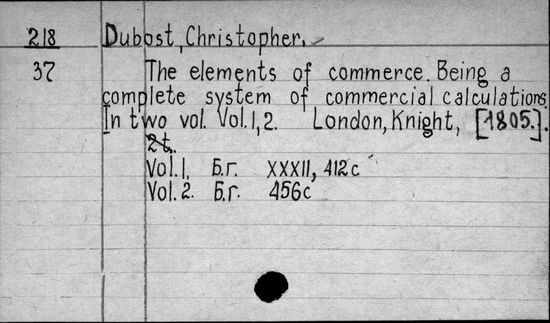 218 Dubost, Christopher.
37 The elements of commerce. Being a
complete system of commercial calculations
In two vol. Vol. 1, 2. London, Knight, [1805.].
2t.
Vol. 1. Б.г. XXXII, 412 c
Vol. 2. Б.г. 456c